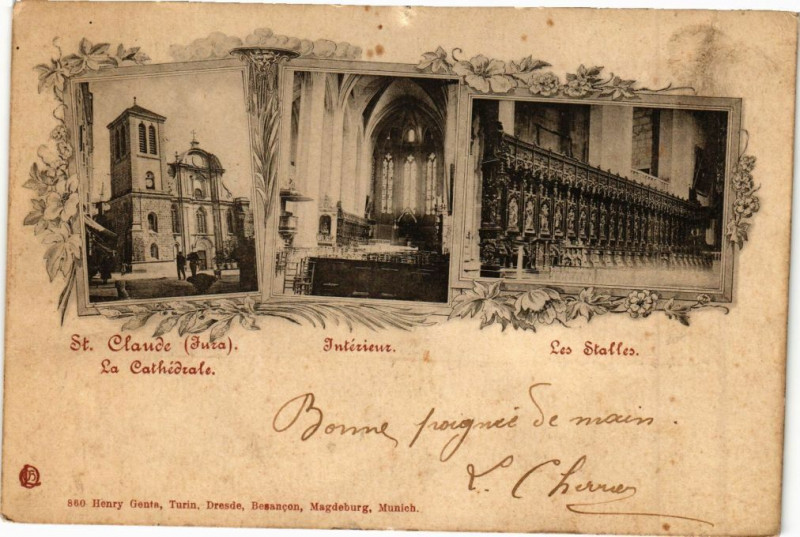 St. Claude (Jura).
La Cathédrale.
Intérieur.
Les Stalles.
Bonne poignée de main.
860 Henry Genta, Turin, Dresde, Besançon, Magdeburg, Munich.